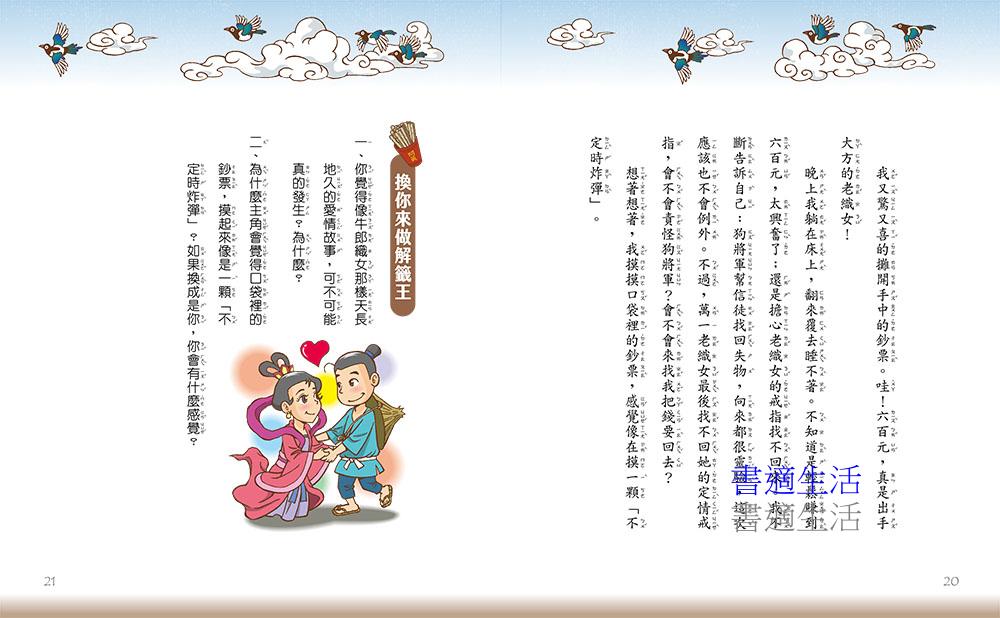 我又驚又喜的攤開手中的鈔票。哇！六百元，真是出手
大方的老織女！
晚上我躺在床上，翻來覆去睡不著。不知道是輕鬆賺到
六百元，太興奮了；還是擔心老織女的戒指找不回來，我不
斷告訴自己：狗將軍幫信徒找回失物，向來都很靈驗，這次
應該也不會例外。不過，萬一老織女最後找不回她的定情戒
指，會不會責怪狗將軍？會不會來找我把錢要回去？
想著想著，我摸摸口袋裡的鈔票，感覺像在摸一顆「不
定時炸彈」。
書適生活
書適生活
20
換你來做解籤王
一、你覺得像牛郎織女那樣天長
地久的愛情故事，可不可能
真的發生？為什麼？
二、為什麼主角會覺得口袋裡的
鈔票，摸起來像是一顆「不
定時炸彈」？如果換成是你，你會有什麼感覺？
21